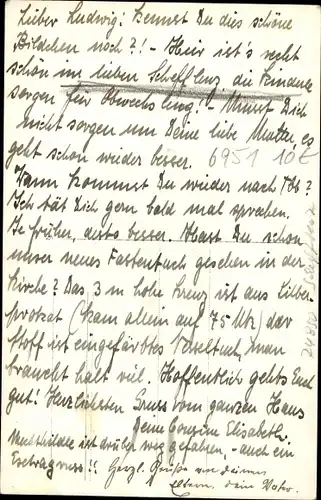 Lieber Ludwig! Kennst Du dies schöne
Bildchen noch?! - Hier ist's recht
schön im lieben Schefflenz die Kinder
sorgen für Abwechslung! - Musst Dich
nicht sorgen um Deine liebe Mutter, es
geht schon wieder besser. 6951 10E
Wann kommst Du wieder nach
Ich tät Dich gern bald mal sprechen.
Je früher, desto besser. Hast Du schon
unser neues Fastentuch gesehen in der
Kirche? Das 3 m hohe Kreuz ist aus Silber-
brokat (kam allein auf 75 Mk) der
Stoff ist eingefärbtes Nesseltuch, man
braucht halt viel. Hoffentlich gehts Euch
gut! Herzlichsten Gruss vom ganzen Haus
Deine Cousine Elisabeth.
ist drüber weg gefahren, - auch ein
Extragruss!! Herzl. Grüße von deinen
Eltern, dein Vater.